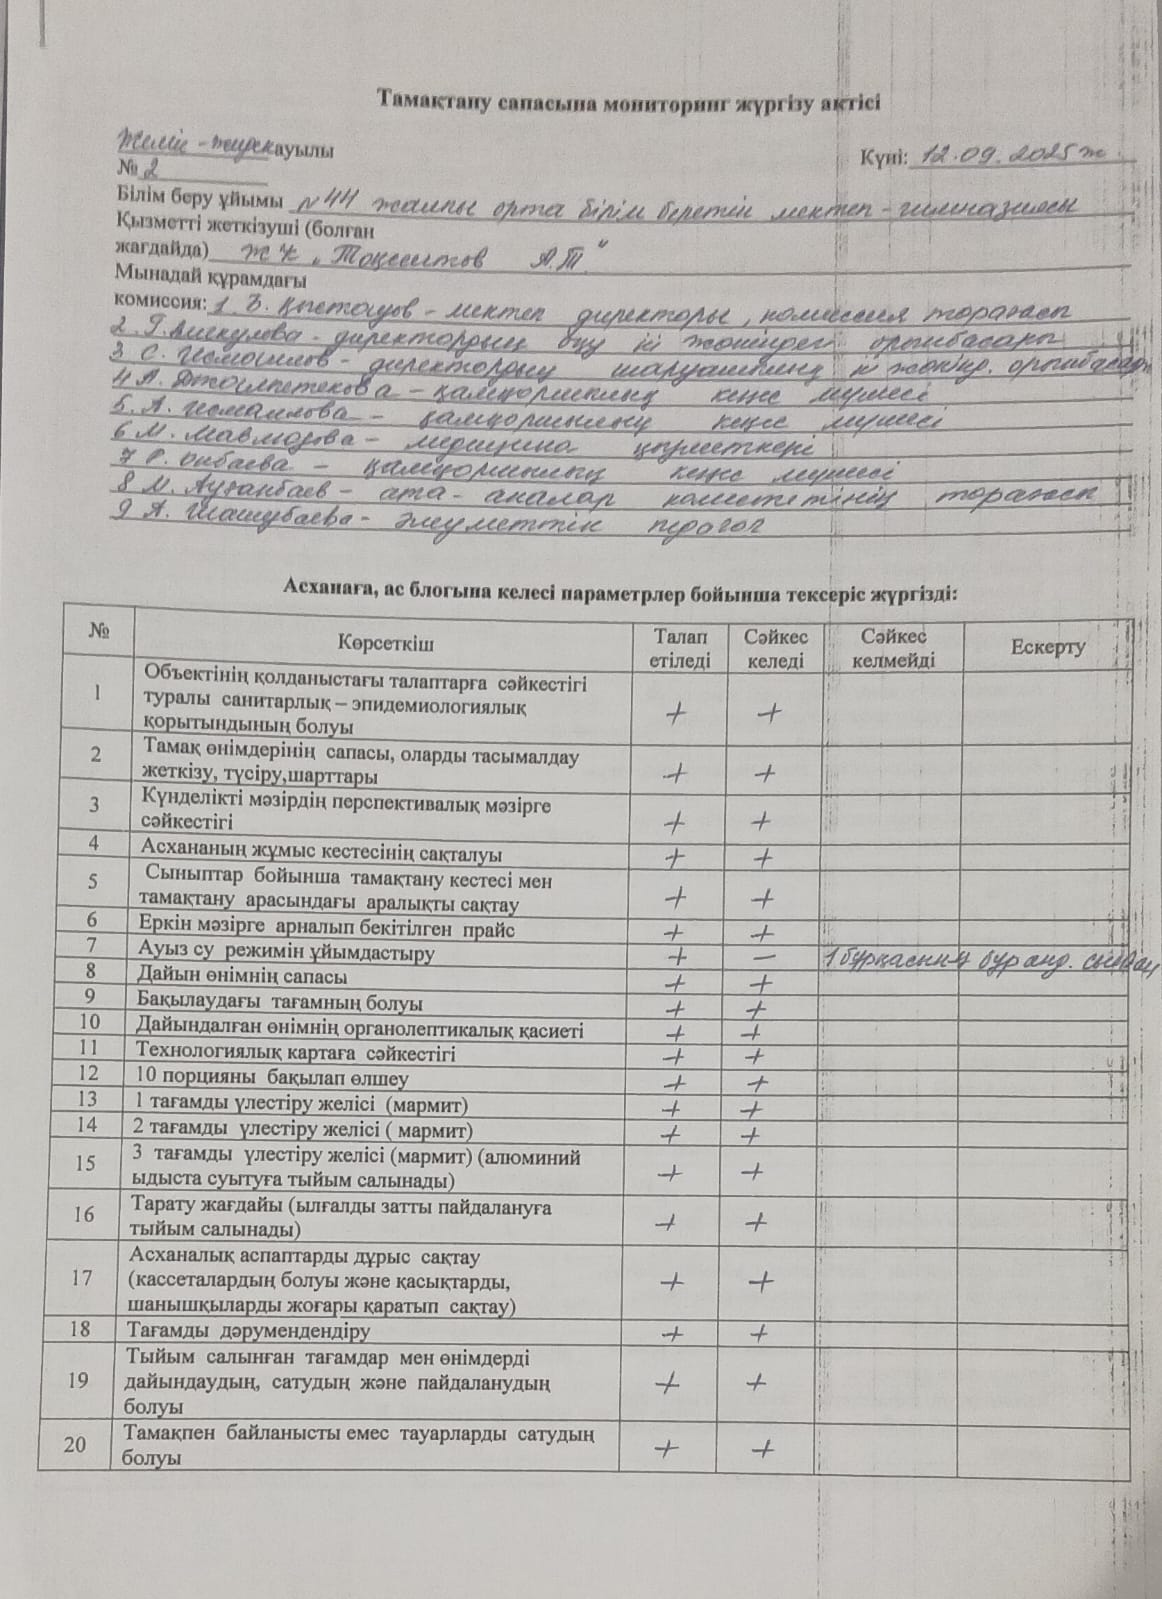 Тамақтану сапасына мониторинг жүргізу актісі
Жеміс-жидек ауылы
Күні: 12.09.2025ж
№ 2
Білім беру ұйымы №44 жалпы орта білім беретін мектеп-гимназиясы
Қызметті жеткізуші (болған
жағдайда) ЖК „Тоқсеитов А.Т."
Мынадай құрамдағы
комиссия: 1. Б. Қыстауов - мектеп директоры, комиссия төрағасы
2. Г. - директордың оқу ісі жөніндегі орынбасары
3 С. Исмоилов - директордың шаруашылық іс жөнінд. орынбасары
4 А. - қамқоршылық кеңес мүшесі
5. А. Исмаилова - қамқоршылық кеңес мүшесі
6 М. - медицина қызметкері
7 Р. - қамқоршылық кеңес мүшесі
8 М. Ауғанбаев - ата-аналар комитетінің төрағасы
9 А. Шашубаева - әлеуметтік педагог
Асханаға, ас блогына келесі параметрлер бойынша тексеріс жүргізді:
№ Көрсеткіш Талап етіледі Сәйкес келеді Сәйкес келмейді Ескерту
1 Объектінің қолданыстағы талаптарға сәйкестігі
туралы санитарлық – эпидемиологиялық
қорытындының болуы + +
2 Тамақ өнімдерінің сапасы, оларды тасымалдау
жеткізу, түсіру,шарттары + +
3 Күнделікті мәзірдің перспективалық мәзірге
сәйкестігі + +
4 Асхананың жұмыс кестесінің сақталуы + +
5 Сыныптар бойынша тамақтану кестесі мен
тамақтану арасындағы аралықты сақтау + +
6 Еркін мәзірге арналып бекітілген прайс + +
7 Ауыз су режимін ұйымдастыру + – 1 бұрқақтың
8 Дайын өнімнің сапасы + +
9 Бақылаудағы тағамның болуы + +
10 Дайындалған өнімнің органолептикалық қасиеті + +
11 Технологиялық картаға сәйкестігі + +
12 10 порцияны бақылап өлшеу + +
13 1 тағамды үлестіру желісі (мармит) + +
14 2 тағамды үлестіру желісі ( мармит) + +
15 3 тағамды үлестіру желісі (мармит) (алюминий
ыдыста суытуға тыйым салынады) + +
16 Тарату жағдайы (ылғалды затты пайдалануға
тыйым салынады) + +
17 Асханалық аспаптарды дұрыс сақтау
(кассеталардың болуы және қасықтарды,
шанышқыларды жоғары қаратып сақтау) + +
18 Тағамды дәрумендендіру + +
19 Тыйым салынған тағамдар мен өнімдерді
дайындаудың, сатудың және пайдаланудың
болуы + +
20 Тамақпен байланысты емес тауарларды сатудың
болуы + +